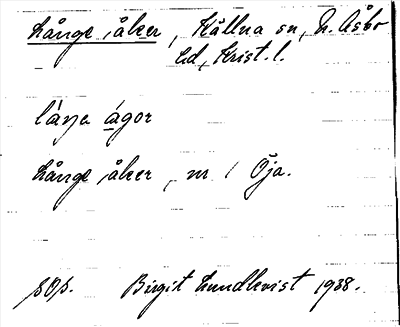 Långe åker, Källna sn, N. Åsbo
hd, Krist. l.
låŋa ågor
Långe åker, nr 1 Öja.
Birgit Lundkvist 1938.